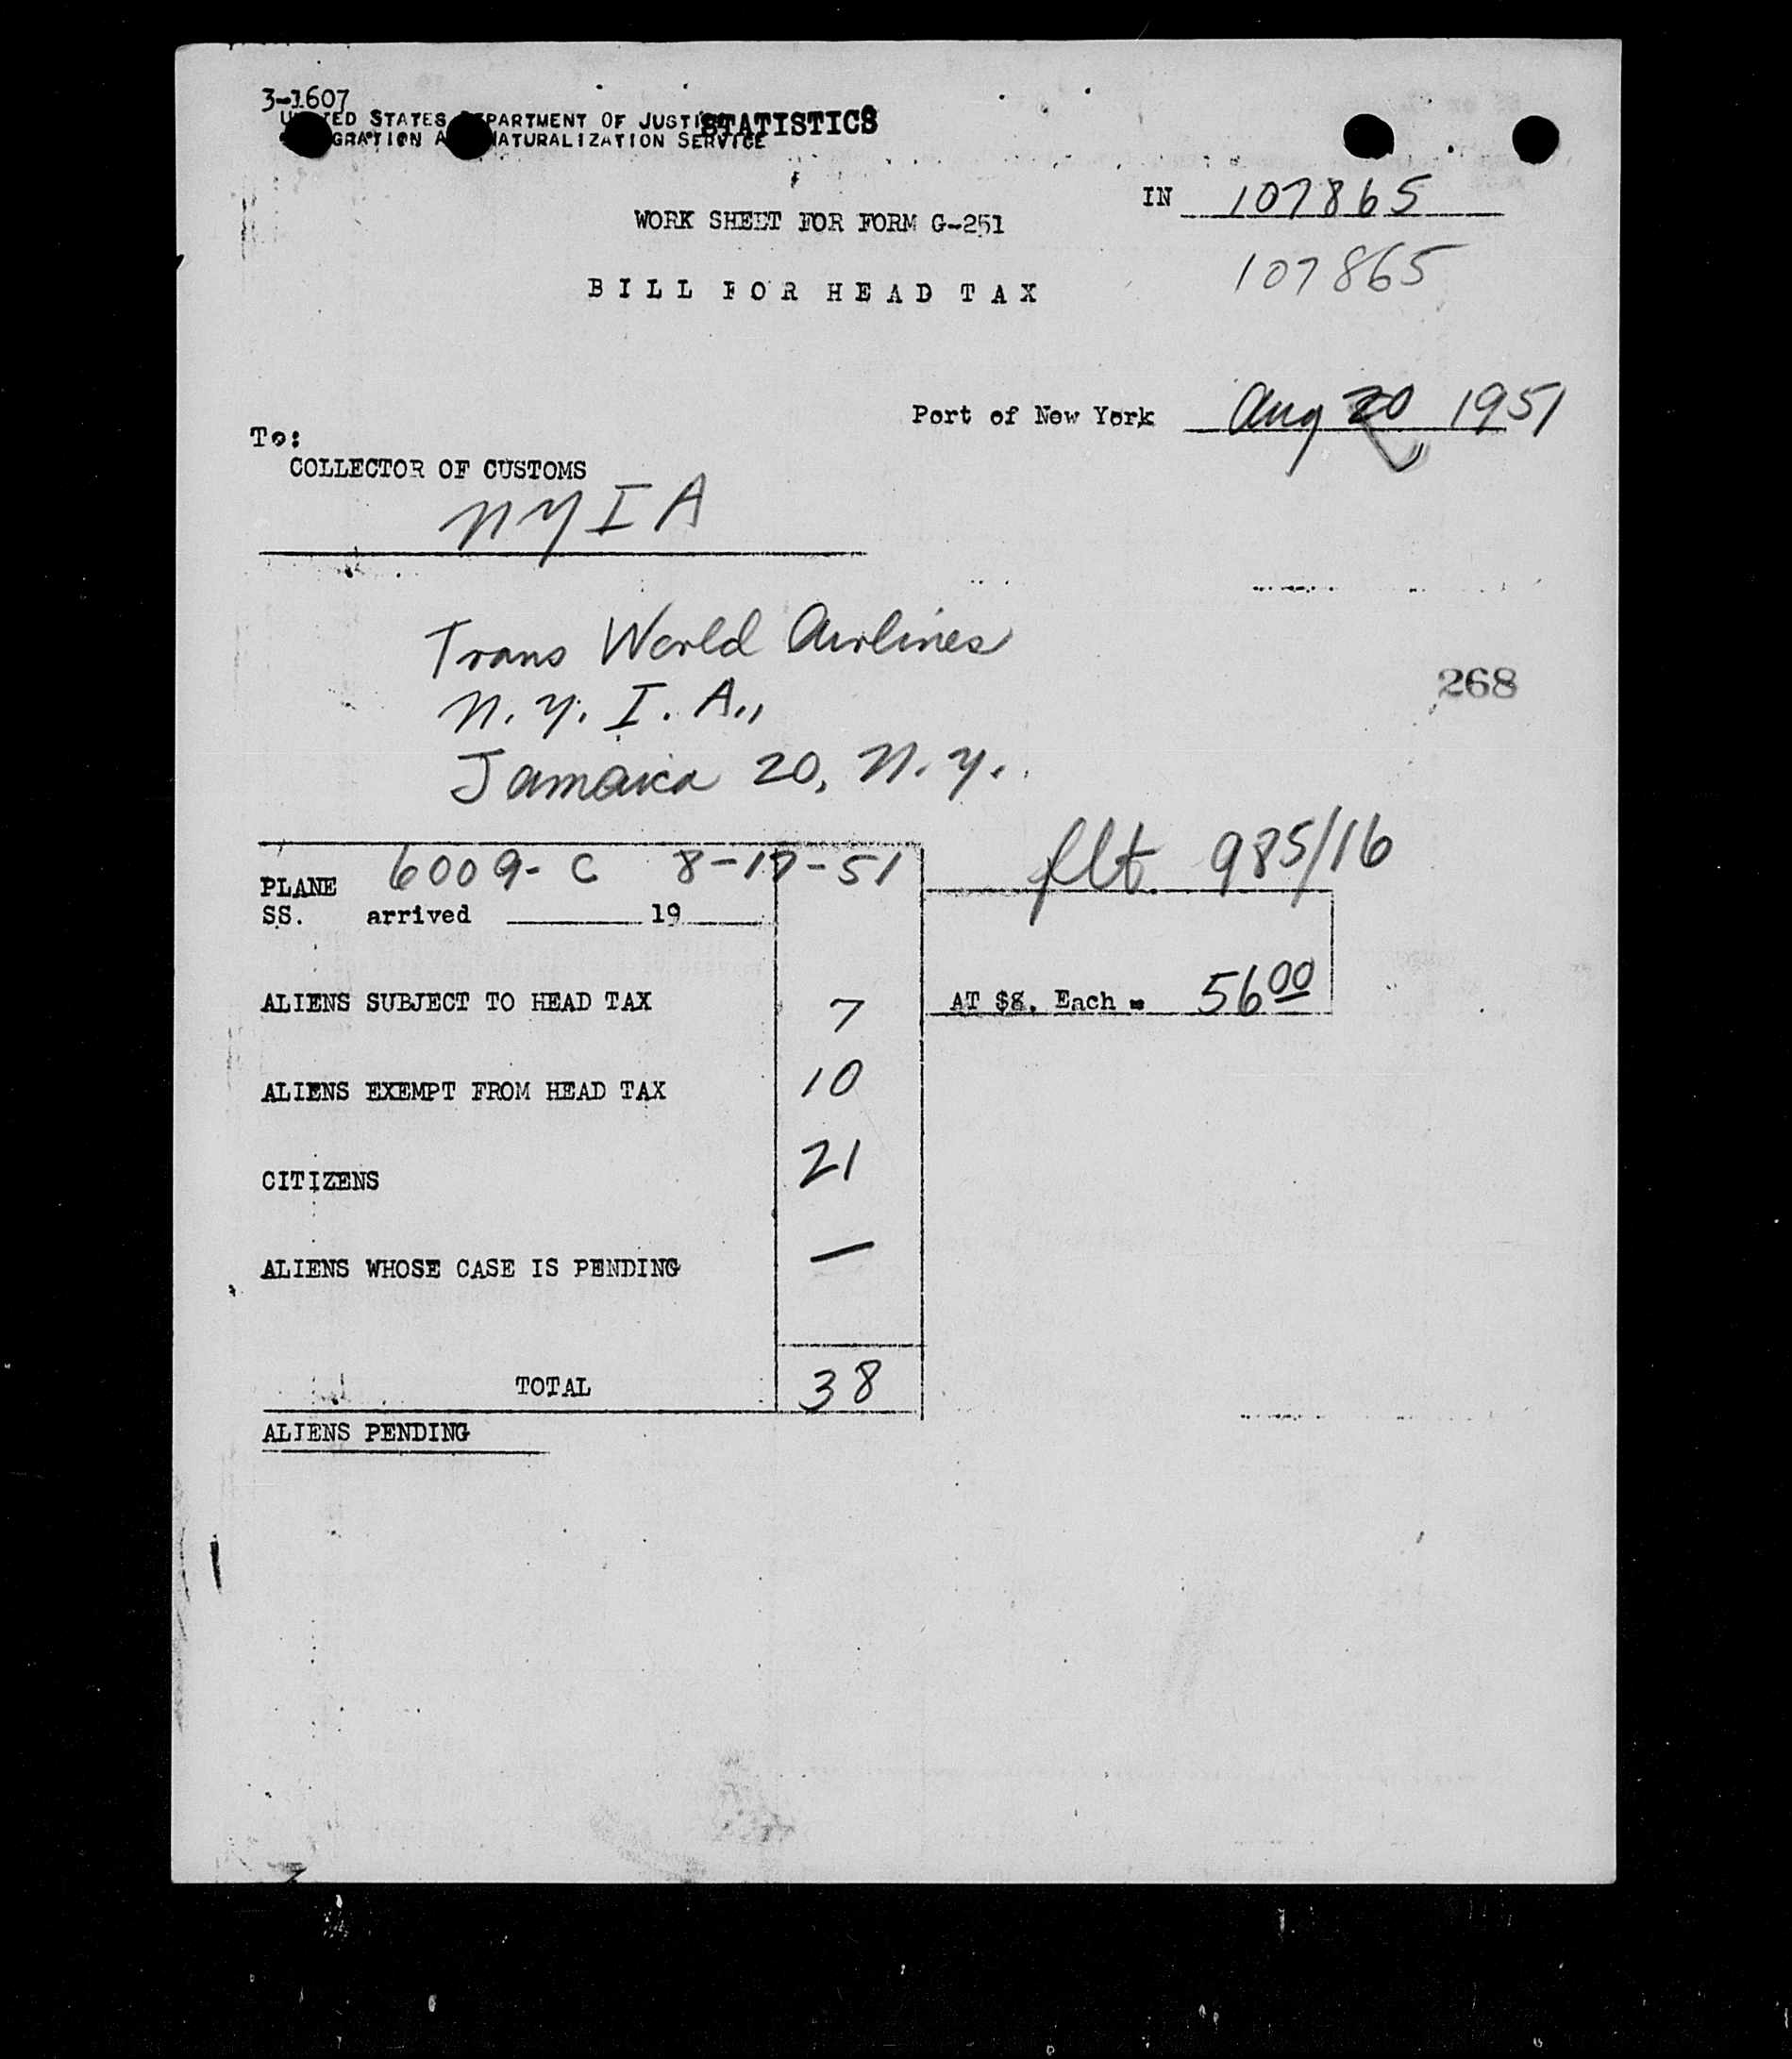 3-1607
UNITED STATES DEPARTMENT OF JUSTICE STATISTICS
IMMIGRATION AND NATURALIZATION SERVICE
IN 107865
WORK SHEET FOR FORM G-251
107865
BILL FOR HEAD TAX
Port of New York Aug 20 1951
To:
COLLECTOR OF CUSTOMS
NYIA
Trans World Airlines
268
N.Y.I.A.,
Jamaica 20, N.Y.
flt. 985/16
PLANE 6009-C 8-17-51
SS. arrived 19
ALIENS SUBJECT TO HEAD TAX 7 AT $8. Each = 56 00
ALIENS EXEMPT FROM HEAD TAX 10
CITIZENS 21
ALIENS WHOSE CASE IS PENDING —
TOTAL 38
ALIENS PENDING